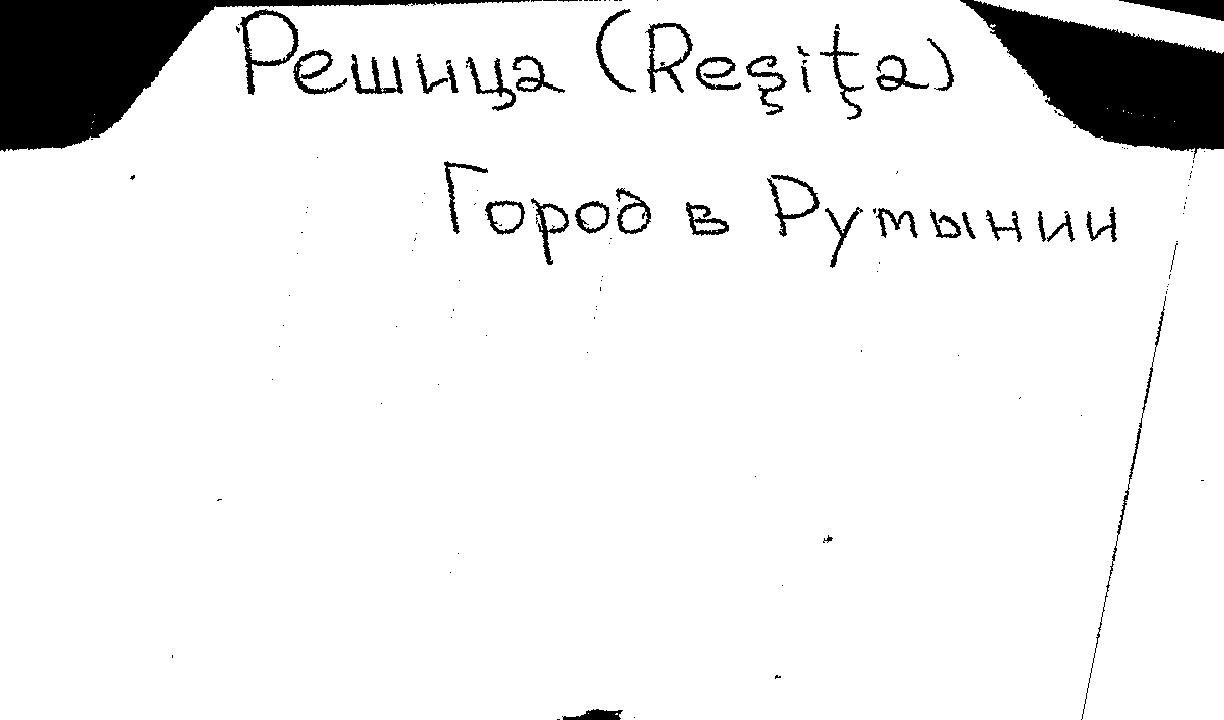 Решица (Reşiţa)
Город в Румынии